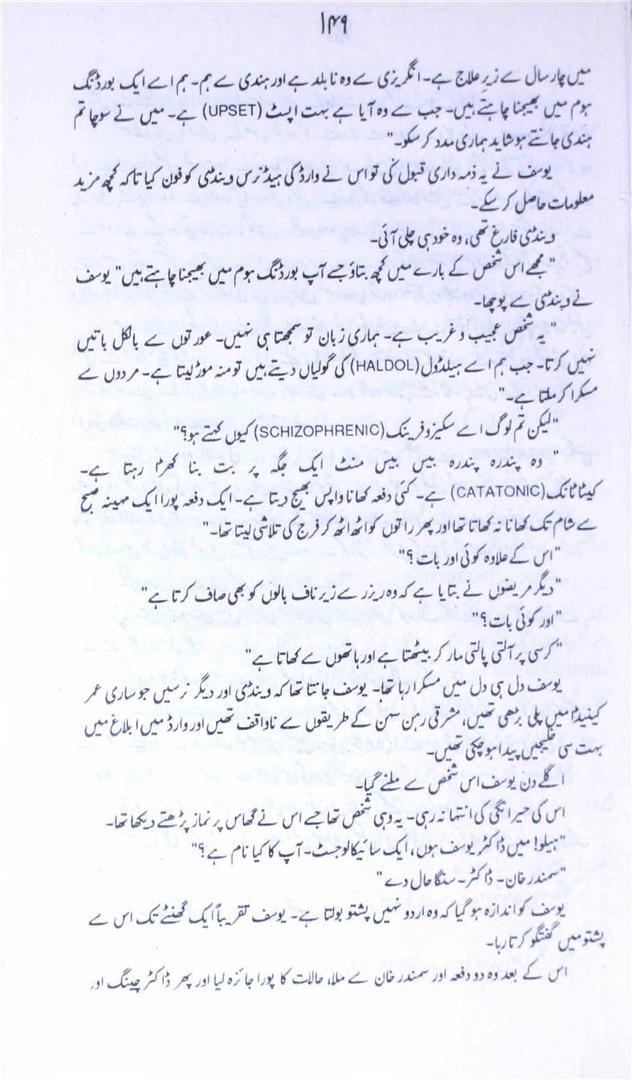 ۱۴۹
میں چار سال سے زیرِ علاج ہے۔ انگریزی سے وہ نابلد ہے اور ہندی سے ہم۔ ہم اسے ایک بورڈنگ
ہوم میں بھیجنا چاہتے ہیں۔ جب سے وہ آیا ہے بہت اپسٹ (UPSET) ہے۔ میں نے سوچا تم
ہندی جانتے ہو شاید ہماری مدد کر سکو۔"
یوسف نے یہ ذمہ داری قبول کی تو اس نے وارڈ کی ہیڈ نرس وینڈی کو فون کیا تاکہ کچھ مزید
معلومات حاصل کر سکے۔
وینڈی فارغ تھی، وہ خود ہی چلی آئی۔
"مجھے اس شخص کے بارے میں کچھ بتاؤ جسے آپ بورڈنگ ہوم میں بھیجنا چاہتے ہیں" یوسف
نے وینڈی سے پوچھا۔
"یہ شخص عجیب و غریب ہے۔ ہماری زبان تو سمجھتا ہی نہیں۔ عورتوں سے بالکل باتیں
نہیں کرتا۔ جب ہم اسے ہیلڈول (HALDOL) کی گولیاں دیتے ہیں تو منہ موڑ لیتا ہے۔ مردوں سے
مسکرا کر ملتا ہے۔"
"لیکن تم لوگ اسے سکیزوفرینک (SCHIZOPHRENIC) کیوں کہتے ہو؟"
"وہ پندرہ پندرہ بیس بیس منٹ ایک جگہ پر بت بنا کھڑا رہتا ہے۔
کیٹاٹانک (CATATONIC) ہے۔ کئی دفعہ کھانا واپس بھیج دیتا ہے۔ ایک دفعہ پورا ایک مہینہ صبح
سے شام تک کھانا نہ کھاتا تھا اور پھر راتوں کو اٹھ اٹھ کر فرج کی تلاشی لیتا تھا۔"
"اس کے علاوہ کوئی اور بات؟"
"دیگر مریضوں نے بتایا ہے کہ وہ ریزر سے زیر ناف بالوں کو بھی صاف کرتا ہے"
"اور کوئی بات؟"
"کرسی پر آلتی پالتی مار کر بیٹھتا ہے اور ہاتھوں سے کھاتا ہے"
یوسف دل ہی دل میں مسکرا رہا تھا۔ یوسف جانتا تھا کہ وینڈی اور دیگر نرسیں جو ساری عمر
کینیڈا میں پلی بڑھی تھیں، مشرقی رہن سہن کے طریقوں سے ناواقف تھیں اور وارڈ میں ابلاغ میں
بہت سی خلیجیں پیدا ہو چکی تھیں۔
اگلے دن یوسف اس شخص سے ملنے گیا۔
اس کی حیرانگی کی انتہا نہ رہی۔ یہ وہی شخص تھا جسے اس نے گھاس پر نماز پڑھتے دیکھا تھا۔
"ہیلو! میں ڈاکٹر یوسف ہوں، ایک سائیکالوجسٹ۔ آپ کا کیا نام ہے؟"
"سمندر خان۔ ڈاکٹر۔ سنگا حال دے"
یوسف کو اندازہ ہو گیا کہ وہ اردو نہیں پشتو بولتا ہے۔ یوسف تقریباً ایک گھنٹے تک اس سے
پشتو میں گفتگو کرتا رہا۔
اس کے بعد وہ دو دفعہ اور سمندر خان سے ملا، حالات کا پورا جائزہ لیا اور پھر ڈاکٹر چینگ اور